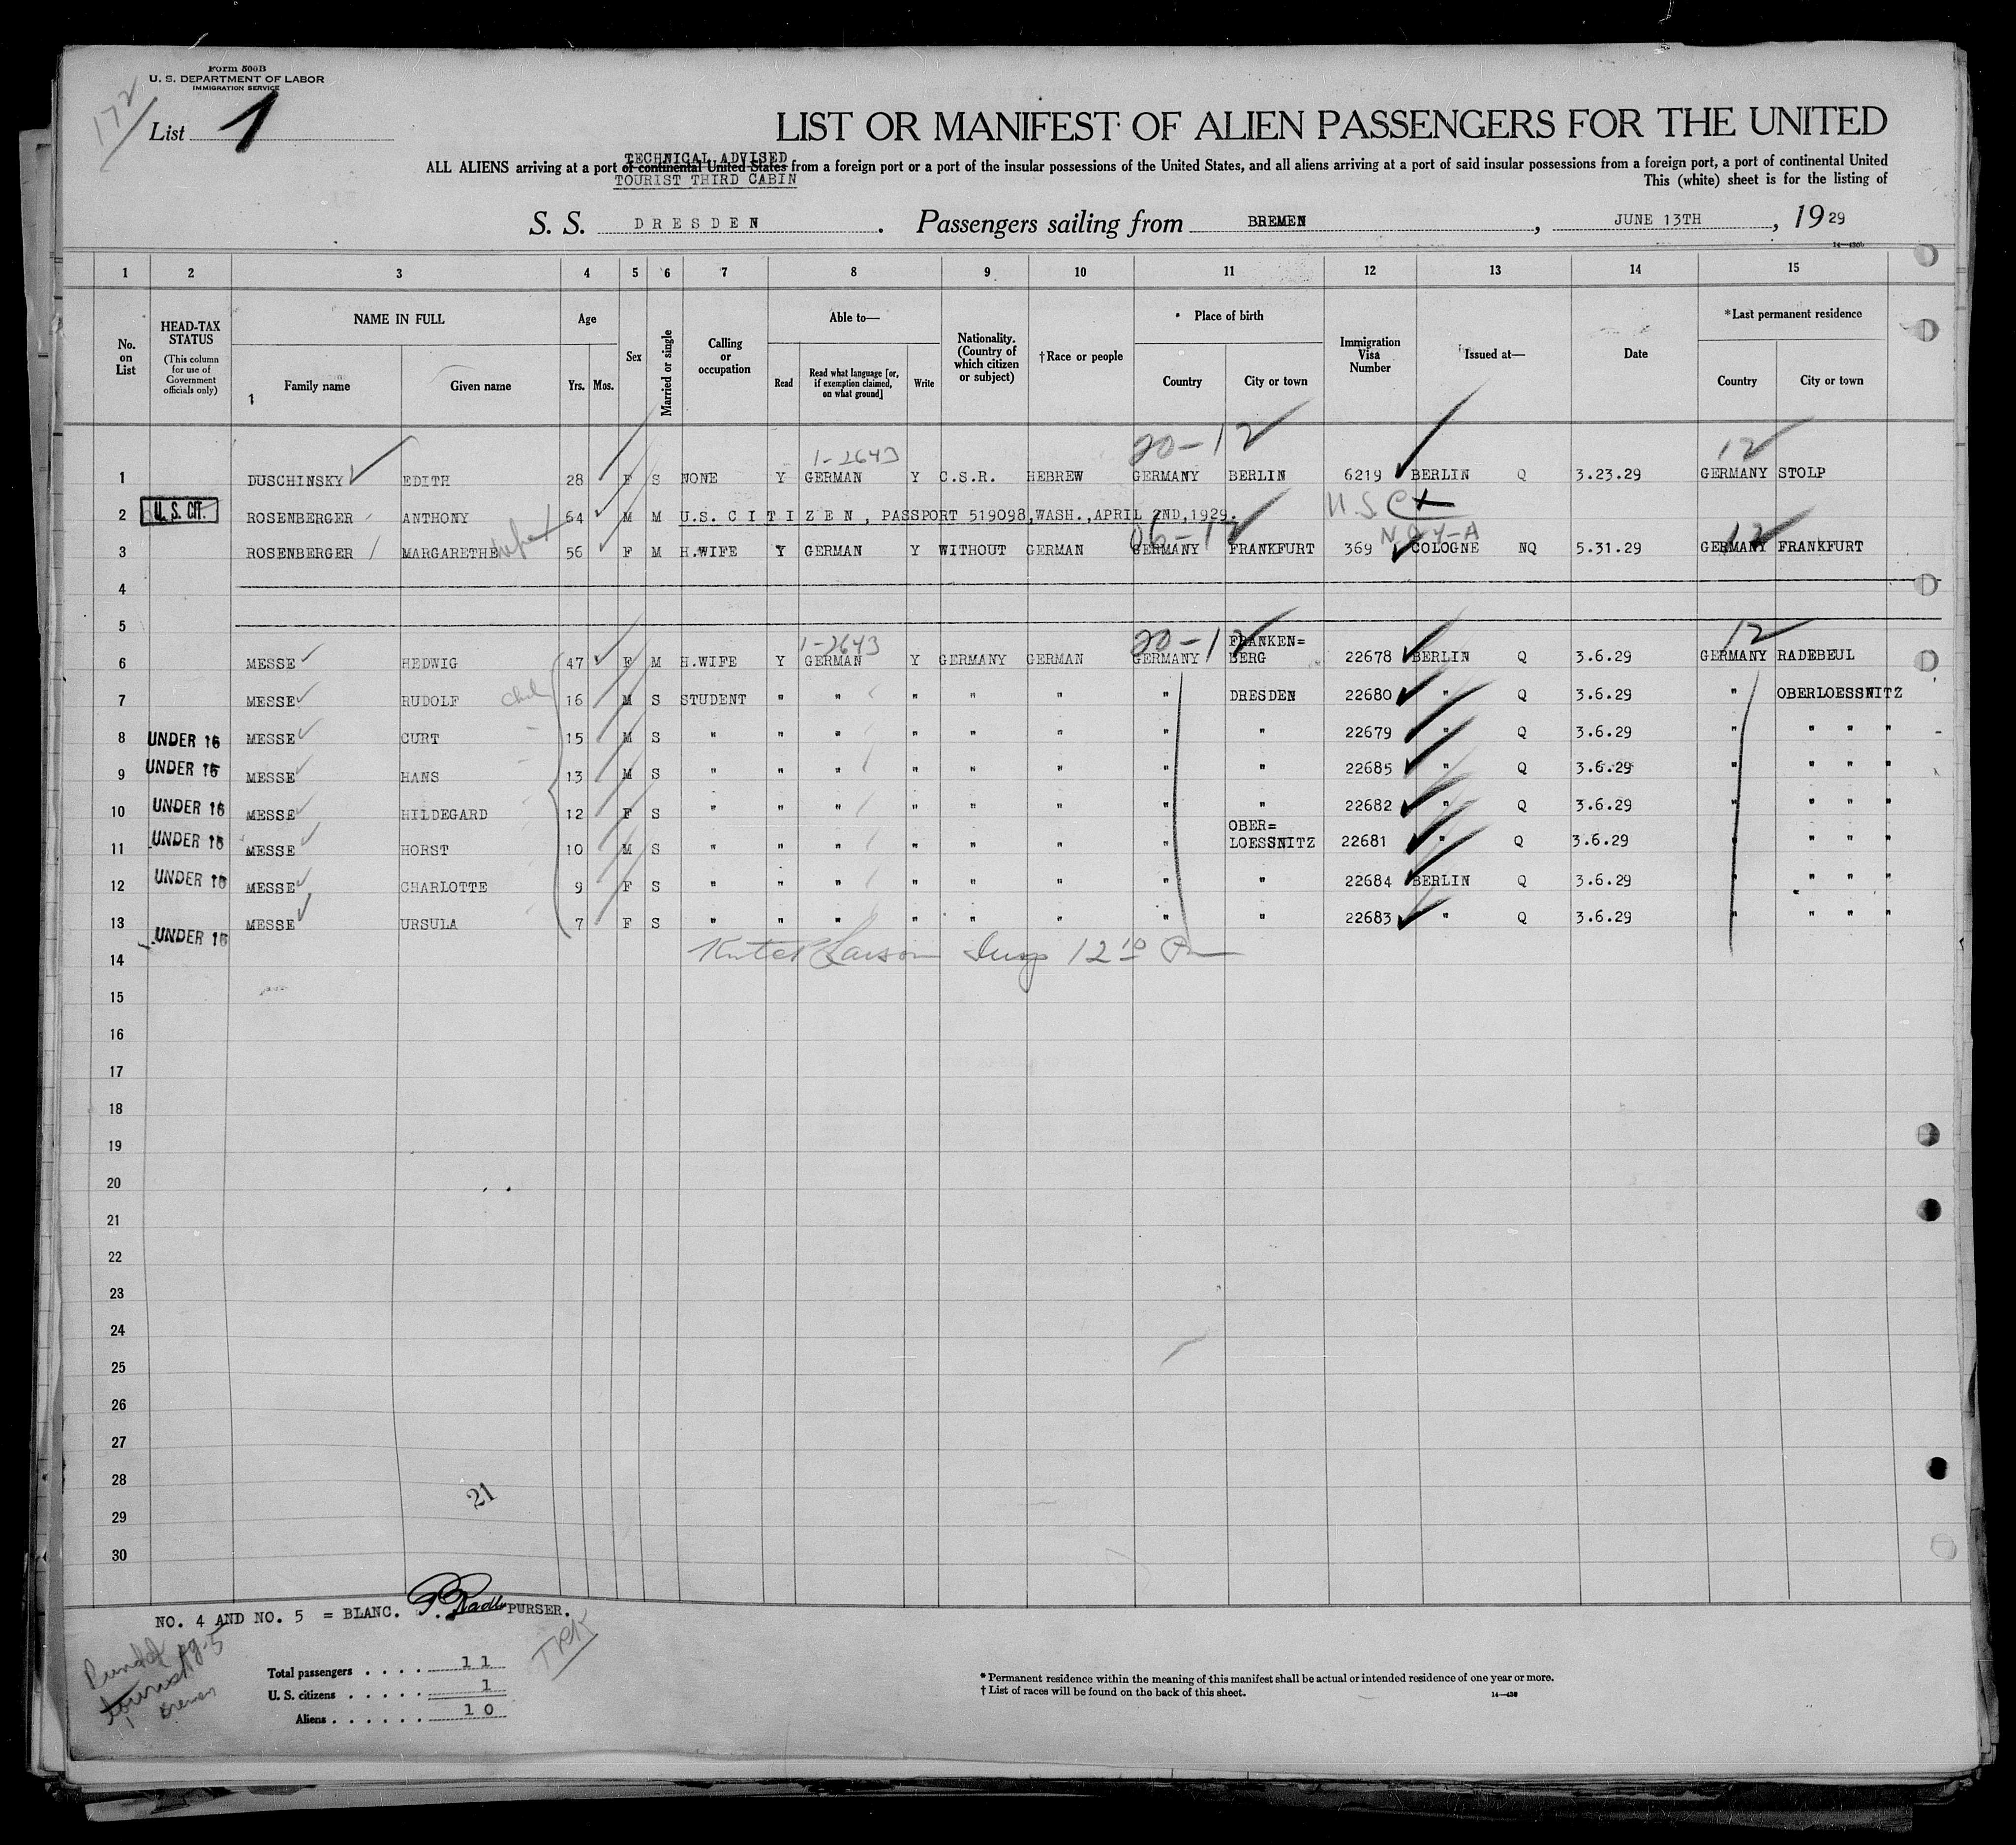 Form 500B
U. S. DEPARTMENT OF LABOR
IMMIGRATION SERVICE
172
List 1
LIST OR MANIFEST OF ALIEN PASSENGERS FOR THE UNITED
TECHNICAL ADVISED
ALL ALIENS arriving at a port of continental United States from a foreign port or a port of the insular possessions of the United States, and all aliens arriving at a port of said insular possessions from a foreign port, a port of continental United
TOURIST THIRD CABIN
This (white) sheet is for the listing of
S. S. DRESDEN. Passengers sailing from BREMEN, JUNE 13TH, 1929
1 2 3 4 5 6 7 8 9 10 11 12 13 14 15
No. on List
HEAD-TAX STATUS
(This column for use of Government officials only)
NAME IN FULL
Family name
Given name
Age
Yrs. Mos.
Sex
Married or single
Calling or occupation
Able to—
Read
Read what language [or, if exemption claimed, on what ground]
Write
Nationality. (Country of which citizen or subject)
†Race or people
* Place of birth
Country
City or town
Immigration Visa Number
Issued at—
Date
*Last permanent residence
Country
City or town
1-2643 20-12 12
1 DUSCHINSKY EDITH 28 F S NONE Y GERMAN Y C.S.R. HEBREW GERMANY BERLIN 6219 BERLIN Q 3.23.29 GERMANY STOLP
2 U.S. CIT. ROSENBERGER ANTHONY 64 M M U.S. CITIZEN, PASSPORT 519098, WASH., APRIL 2ND, 1929. U.S.C
06-12 12
3 ROSENBERGER MARGARETHE 56 F M H.WIFE Y GERMAN Y WITHOUT GERMAN GERMANY FRANKFURT 369 COLOGNE NQ 5.31.29 GERMANY FRANKFURT
4
5
1-2643 20-12 12
6 MESSE HEDWIG 47 F M H.WIFE Y GERMAN Y GERMANY GERMAN GERMANY FRANKEN= BERG 22678 BERLIN Q 3.6.29 GERMANY RADEBEUL
7 MESSE RUDOLF 16 M S STUDENT " " " " " " DRESDEN 22680 " Q 3.6.29 " OBERLOESSNITZ
8 UNDER 16 MESSE CURT 15 M S " " " " " " " " 22679 " Q 3.6.29 " " " "
9 UNDER 16 MESSE HANS 13 M S " " " " " " " " 22685 " Q 3.6.29 " " " "
10 UNDER 16 MESSE HILDEGARD 12 F S " " " " " " " " 22682 " Q 3.6.29 " " " "
11 UNDER 16 MESSE HORST 10 M S " " " " " " " OBER= LOESSNITZ 22681 " Q 3.6.29 " " " "
12 UNDER 16 MESSE CHARLOTTE 9 F S " " " " " " " " 22684 BERLIN Q 3.6.29 " " " "
13 UNDER 16 MESSE URSULA 7 F S " " " " " " " " 22683 " Q 3.6.29 " " " "
14
15
16
17
18
19
20
21
22
23
24
25
26
27
28
29
30
21
NO. 4 AND NO. 5 = BLANC. PURSER.
Total passengers . . . . 11
U. S. citizens . . . . . 1
Aliens . . . . . . 10
* Permanent residence within the meaning of this manifest shall be actual or intended residence of one year or more.
† List of races will be found on the back of this sheet.